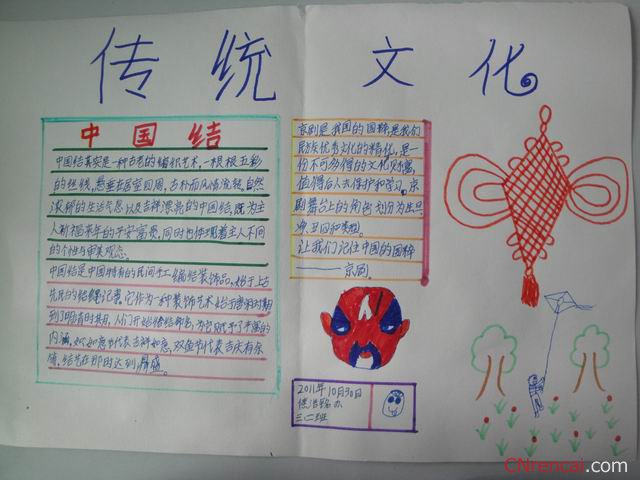 传统文化
中国结
中国结其实是一种古老的编织艺术,一根根五彩
的丝线,悬垂在居室四周,古朴而风情流转,自然
浓郁的生活气息以及吉祥漂亮的中国结,既为主
人祈福来年的平安富贵,同时也体现着主人不同
的个性与审美观念。
中国结是中国特有的民间手工编结装饰品,始于上古
先民的结绳记事,它作为一种装饰艺术始于唐宋时期
到了明清时期,人们开始给结命名,为它赋予了丰富的
内涵,如如意节代表吉祥如意,双鱼节代表吉庆有余
等,结艺在那时达到鼎盛。
京剧是我国的国粹,是我们
民族优秀文化的精化,是一
份不可多得的文化财富,
值得后人去保护和学习。京
剧舞台上的角色划分为生旦
净丑四种类型。
让我们记住中国的国粹
——京剧。
2011年10月30日
三二班
CNrencai.com